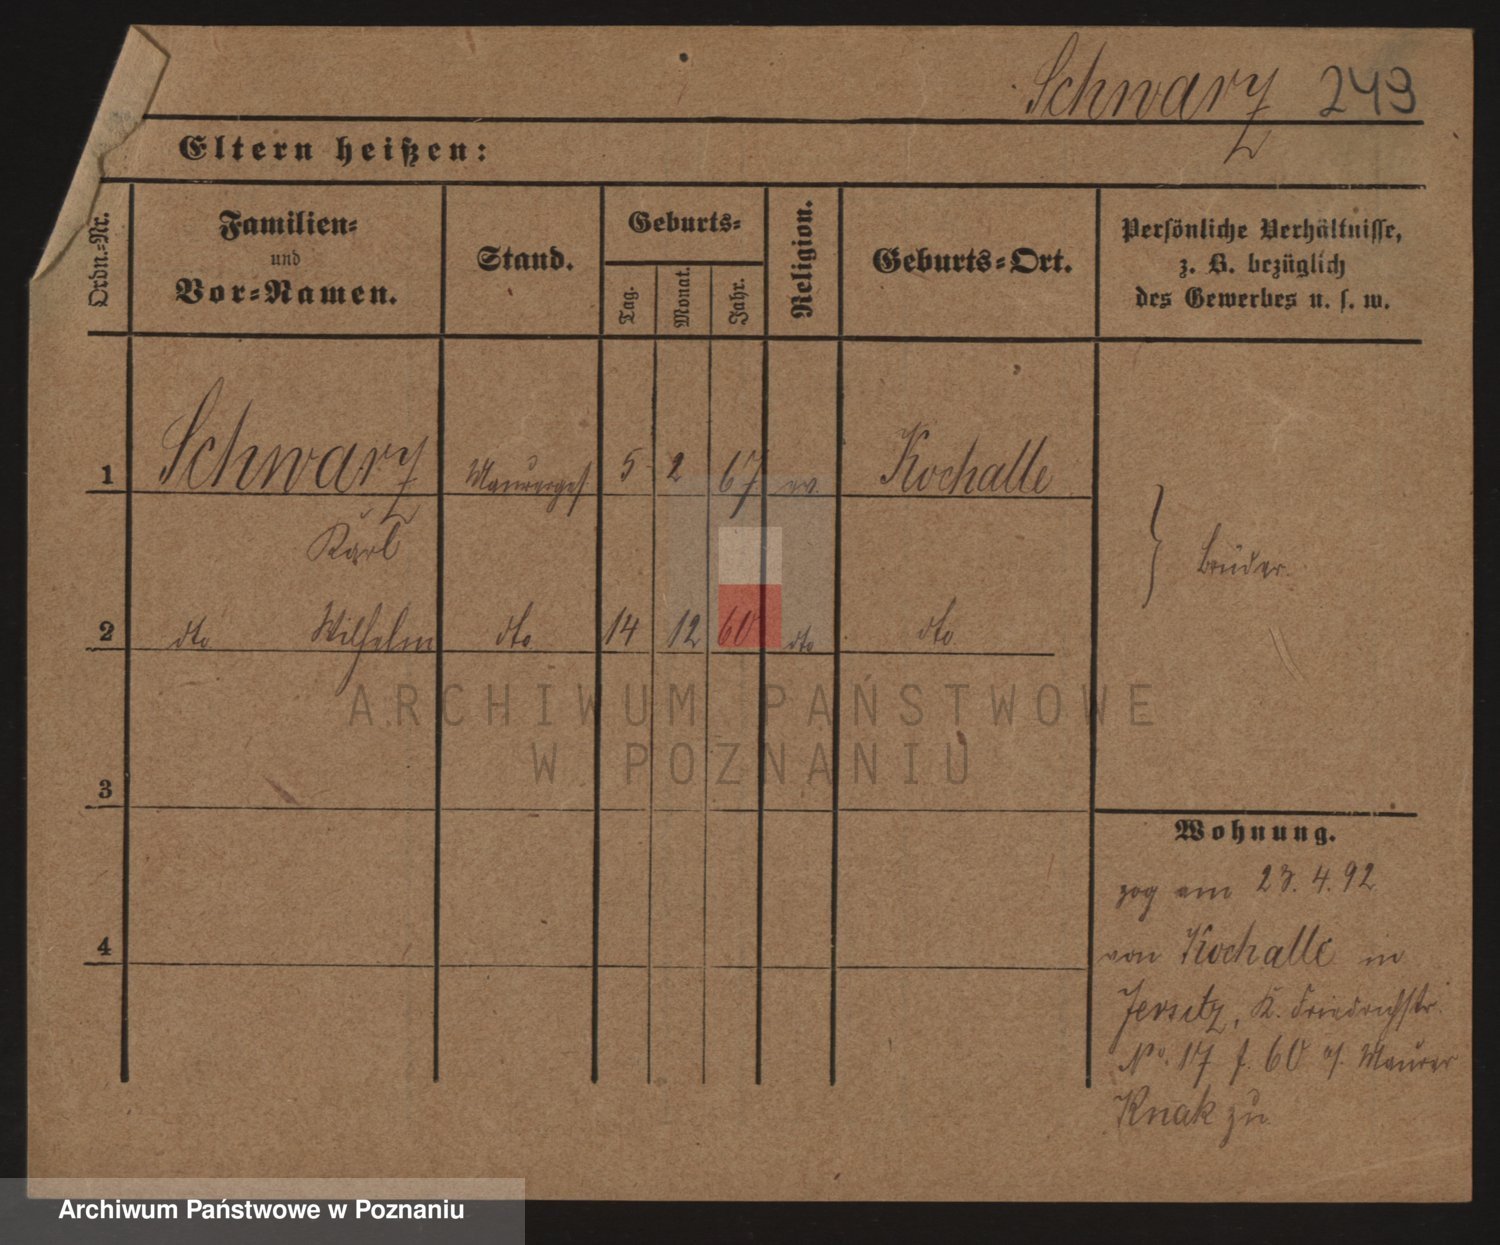 Schwarz 249
Eltern heißen:
Ordn.-Nr.
Familien-
und
Vor-Namen.
Stand.
Geburts-
Tag.
Monat.
Jahr.
Religion.
Geburts-Ort.
Persönliche Verhältnisse,
z. B. bezüglich
des Gewerbes u. s. w.
1 Schwarz Maurerges. 5 2 67 ev. Kochalle
Karl
Brüder.
2 dto Wilhelm dto 14 12 60 dto dto
ARCHIWUM PAŃSTWOWE
W POZNANIU
3
Wohnung.
zog am 23. 4. 92
von Kochalle in
4
Jersitz, K. Friedrichstr.
No. 17 f. 60 Maurer
Knak zu
Archiwum Państwowe w Poznaniu